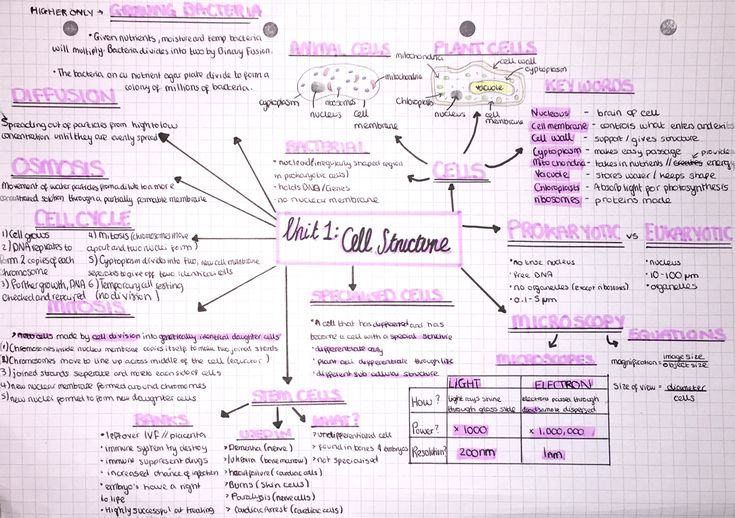 HIGHER ONLY → GROWING BACTERIA
• Given nutrients, moisture and temp bacteria
will multiply. Bacteria divides into two by Binary Fussion.
• The bacteria on cu nutrient agar plate divide to form a
colony of millions of bacteria.
ANIMAL CELLS
mitochondria
cytoplasm
ribosomes
nucleus
cell
membrane
PLANT CELLS
mitochondria
cell wall
cytoplasm
vacuole
Chloroplast
nucleus
cell
membrane
KEY WORDS
Nucleus - brain of cell
Cell membrane - controls what enters and exits
Cell wall - support / gives structure
Cytoplasm - makes easy passage
Mitochondria - takes in nutrients // creates provides energy
Vacuole - stores water / keeps shape
Chloroplasts - Absorb light for photosynthesis
ribosomes - proteins made
DIFFUSION
Spreading out of particles from high to low
concentration until they are evenly spread
OSMOSIS
Movement of water particles from a dilute to a more
concentrated solution through a partially permable membrane
BACTERIAL
• nucleoid (irregularly shaped region
in prokaryotic cells)
- holds DNA / Genes
- no nuclear membrane
CELLS
Unit 1: Cell Structure
CELL CYCLE
1) Cell grows
2) DNA replicates to
form 2 copies of each
Chromosome
3) Further growth, DNA
Checked and repaired
4) Mitosis (chromosomes move
apart and two nuclei form)
5) Cytoplasm divides into two, new cell membrane
seperates to give off two identical cells
6) Temporary cell resting
(no division)
PROKARYOTIC vs EUKARYOTIC
• no true nucleus
• free DNA
• no organelles (except ribosomes)
• 0.1-5 μm
• nucleus
• 10-100 μm
• organelles
MITOSIS
> new cells made by cell division into genetically identical daughter cells
1) Chromosomes inside nuclear membrane copies itself to make two joined strands
2) Chromosomes move to line up across middle of the cell (equator)
3) joined strands seperate and move to each side of cells
4) new nuclear membrane formed around chromosomes
5) new nuclei formed to form new daughter cells
SPECIALISED CELLS
• A cell that has differed and has
become a cell with a special structure
• differentiate early
• plant cell differentiate through life
• different sub cellular structure
MICROSCOPY
EQUATIONS
magnification = image size
object size
Size of view = diameter
cells
MICROSCOPES
LIGHT
ELECTRON
How?
Light rays shine
through glass slide
electrons passed through
dead sample dispersed
Power?
× 1000
× 1,000,000
Resolution?
200nm
1nm
STEM CELLS
BANKS
• leftover IVF // placenta
• immune system try destroy
• immune suppresent drugs
• increased chance of infection
• embryo's have a right
to life
• Highly successful at treating
USED IN
> Dementia (nerve)
> (bone marrow)
> heart failure (cardiac cells)
> Burns (skin cells)
> Paralysis (nerve cells)
> Cardiac Arrest (cardiac cells)
WHAT?
> undifferentiated cell
> found in bones & embryos
> not specialised